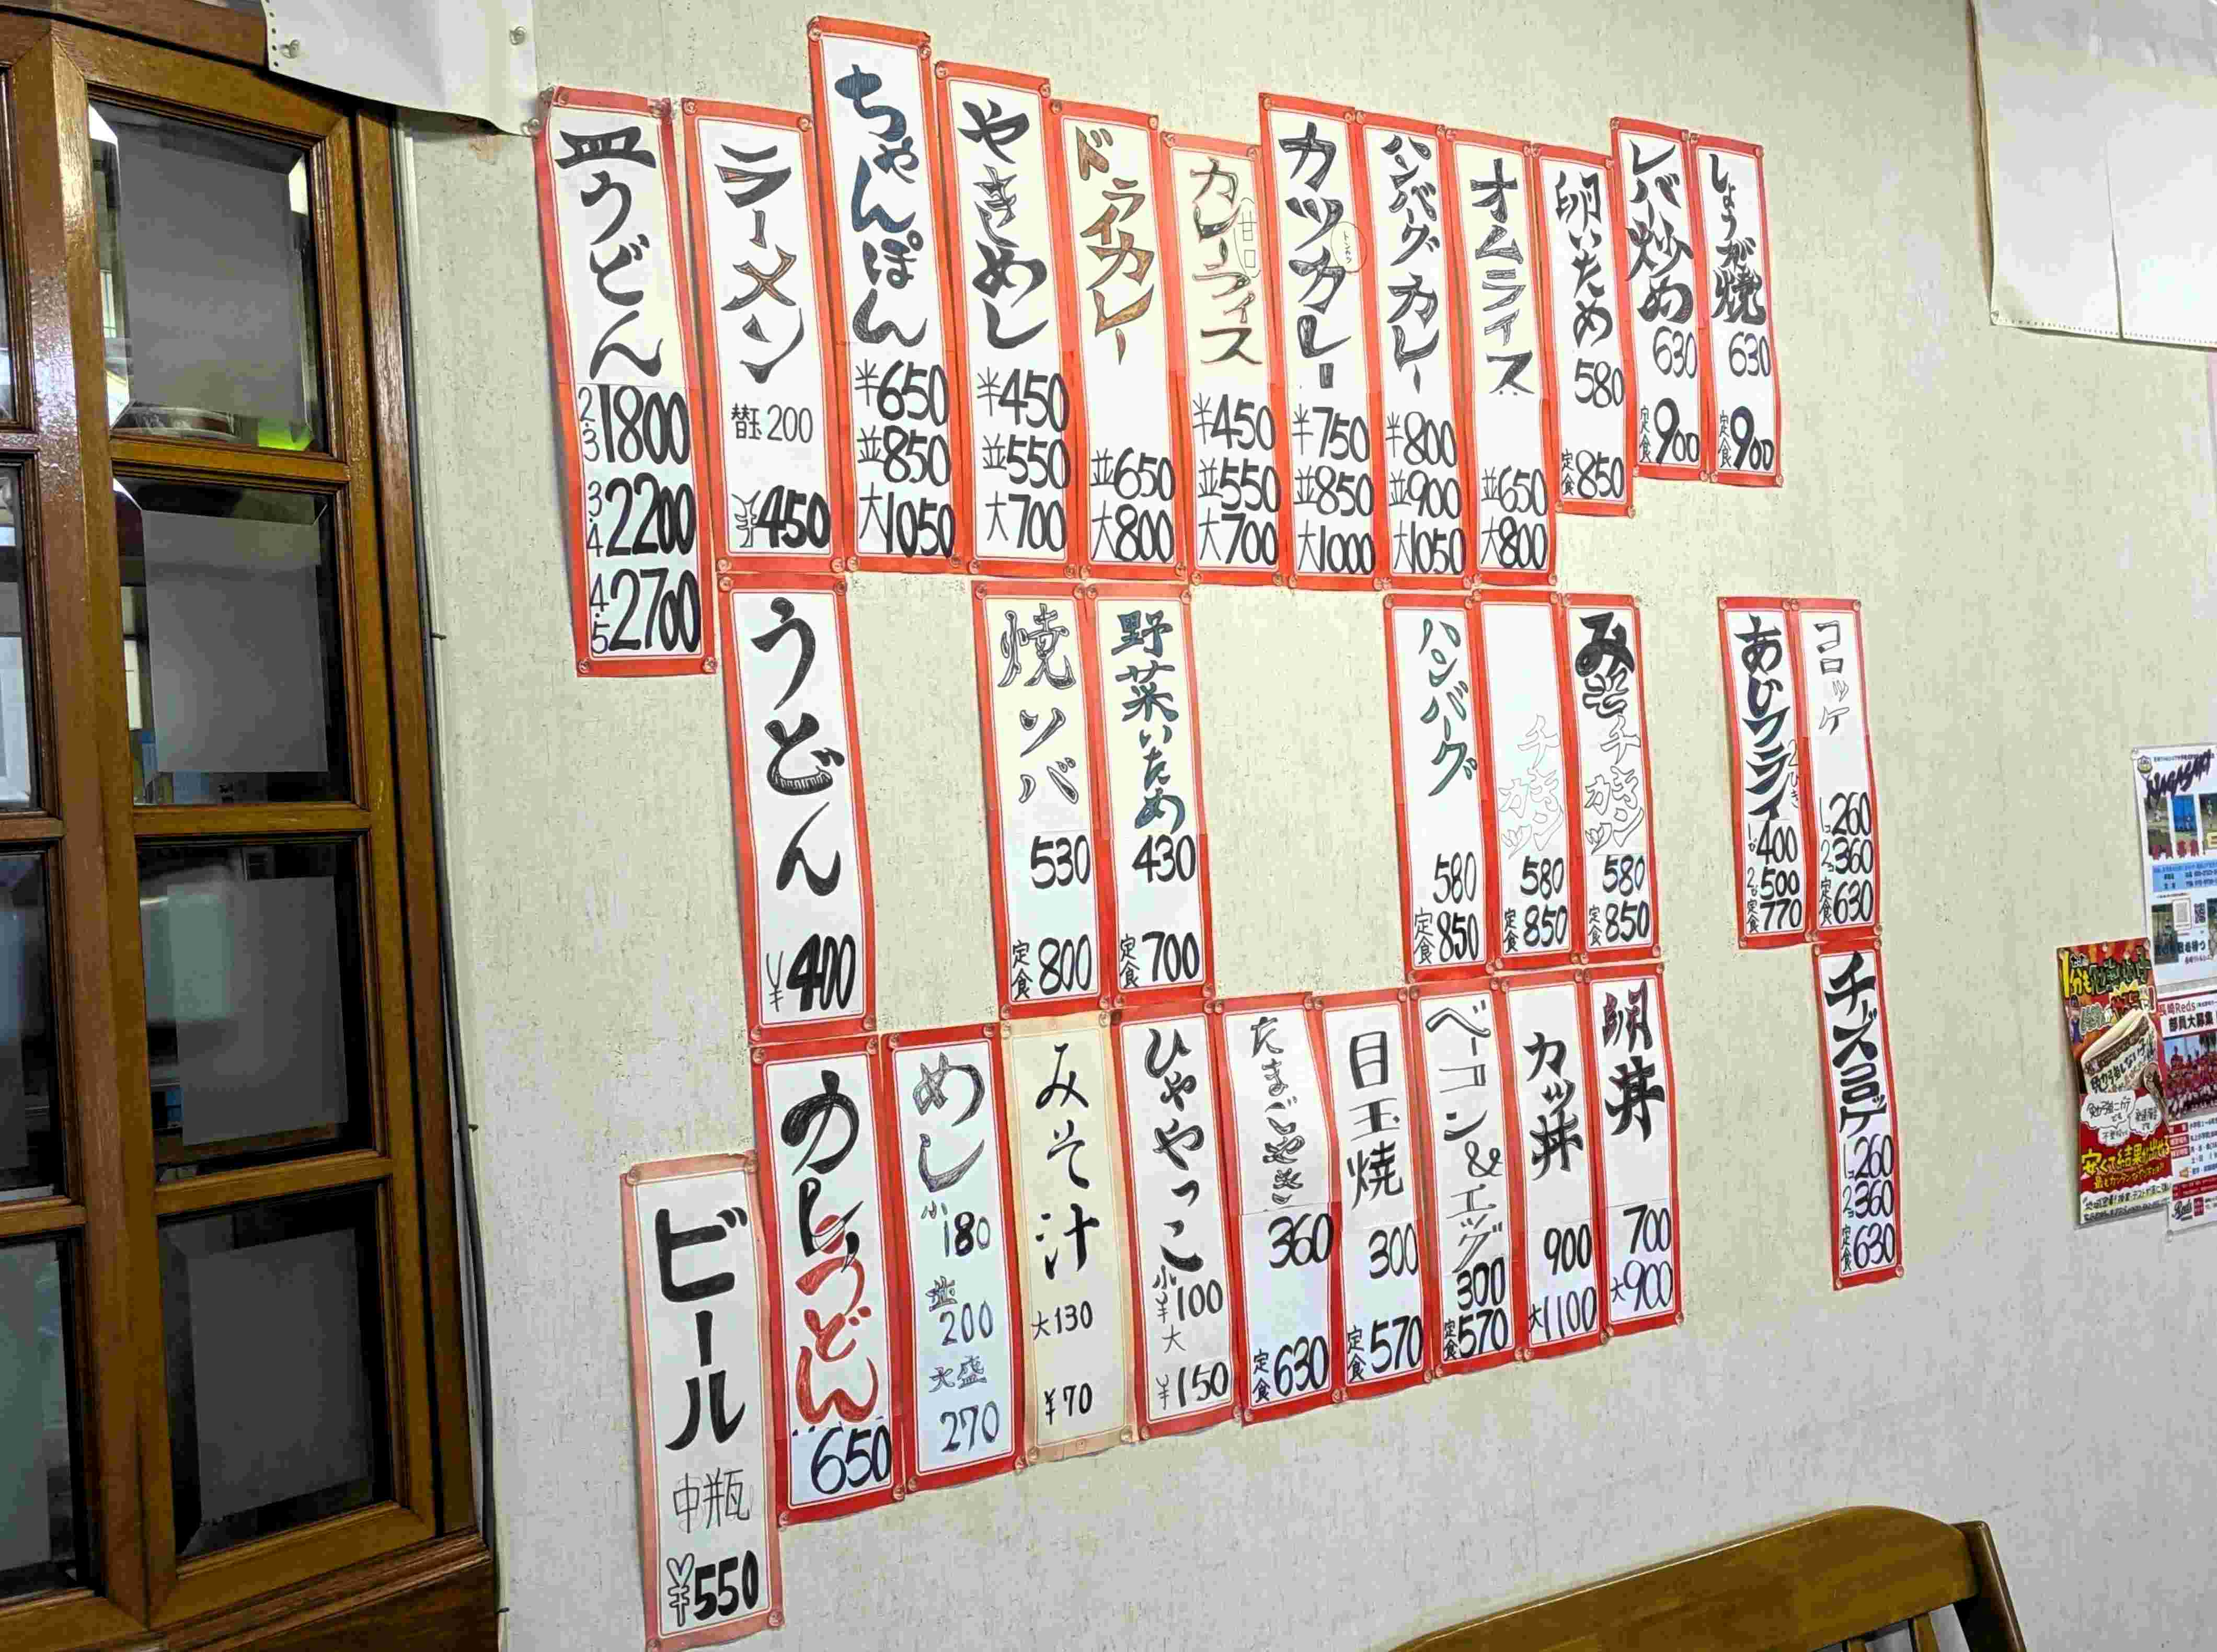 皿うどん
2.3 1800
3.4 2200
4.5 2700
ラーメン
替玉 200
¥450
ちゃんぽん
半650
並850
大1050
やきめし
半450
並550
大700
ドライカレー
並650
大800
カレーライス
甘口
半450
並550
大700
カツカレー
トンカツ
半750
並850
大1000
ハンバーグカレー
半800
並900
大1050
オムライス
並650
大800
卵いため
580
定食850
レバ炒め
630
定食900
しょうが焼
630
定食900
うどん
¥400
焼ソバ
530
定食800
野菜いため
430
定食700
ハンバーグ
580
定食850
チキンカツ
580
定食850
みそチキンカツ
580
定食850
あじフライ
400
500
定食770
コロッケ
1コ260
2コ360
定食630
チーズコロッケ
1コ260
2コ360
定食630
ビール
中瓶
¥550
カレーうどん
650
めし
小180
並200
大盛270
みそ汁
大130
¥70
ひややっこ
小¥100
大¥150
たまごやき
360
定食630
目玉焼
300
定食570
ベーコン&エッグ
300
定食570
カツ丼
900
大1100
卵丼
700
大900
NAGASAKI
長崎Reds
部員大募集
安くて結果が出せる
Reds